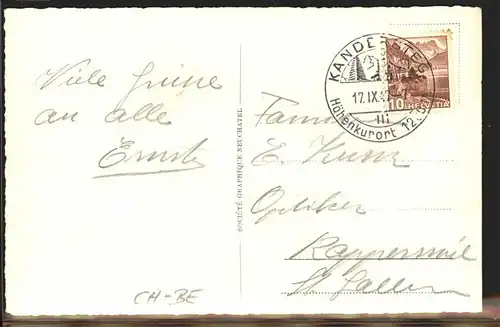 Viele Grüsse
an alle
Ernst
SOCIÉTÉ GRAPHIQUE NEUCHATEL
KANDERSTEG
17.IX.42
Höhenkurort 12
10 HELVETIA
E. Kunz
Optiker
Rapperswil
St. Gallen
CH-BE